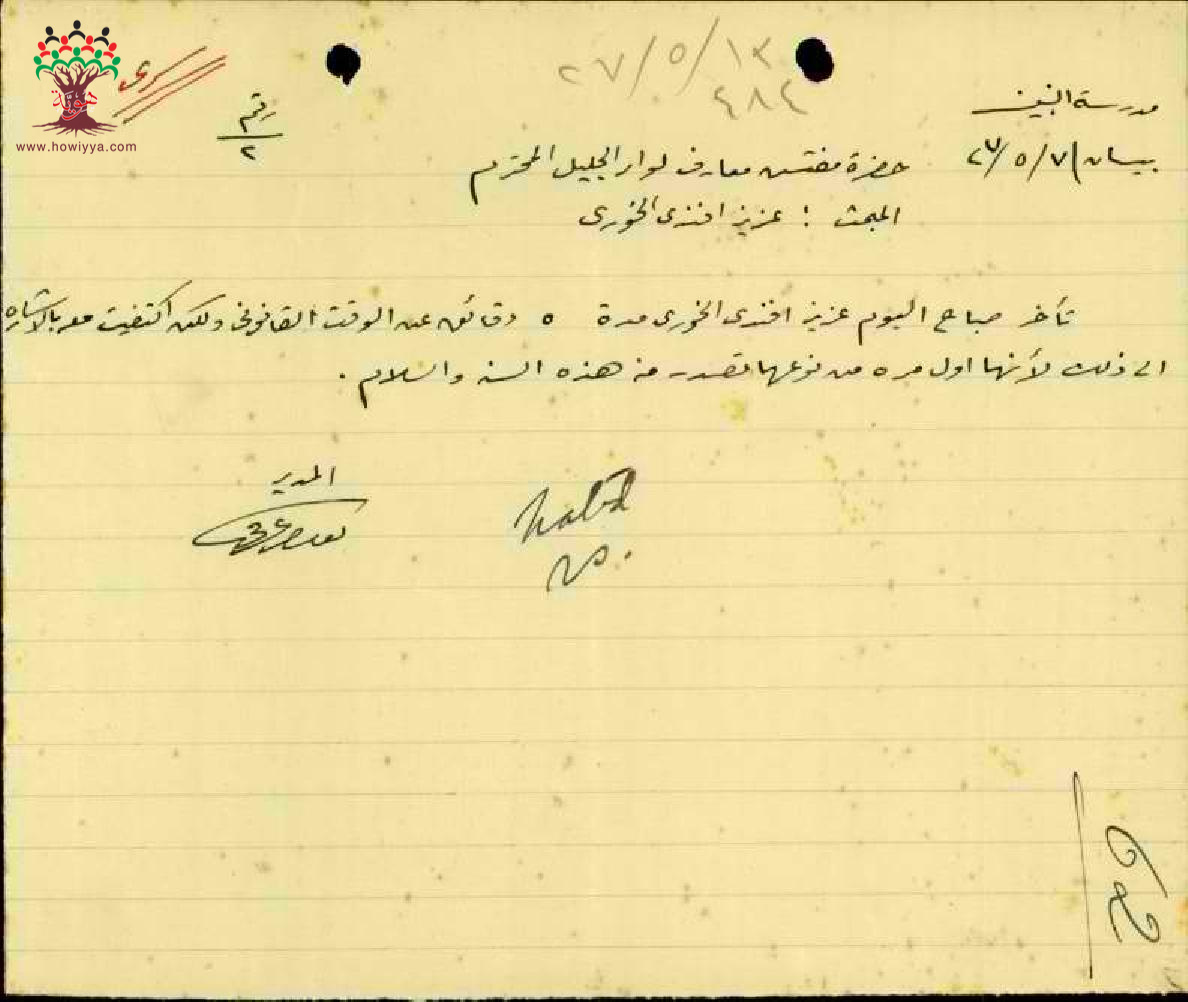 هوية
www.howiyya.com
سري
٢٧/٥/١٣
٤٨٤
رقم
٢
مدرسة البنين
بيسان ٢٧/٥/٧
حضرة مفتش معارف لواء الجليل المحترم
المبحث : عزيز افندي الخوري
تأخر صباح اليوم عزيز افندي الخوري مدة ٥ دقائق عن الوقت القانوني ولكن اكتفيت معه بالاشاره
الى ذلك لأنها اول مره من نوعها تصدر منه هذه السنه والسلام .
المدير
62